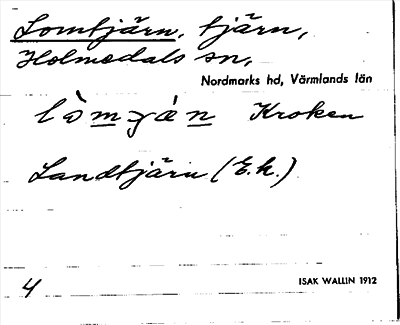 Lomtjärn, tjärn,
Holmedals sn,
Nordmarks hd, Värmlands län
Kroken
Landtjärn (E.k.)
4
ISAK WALLIN 1912